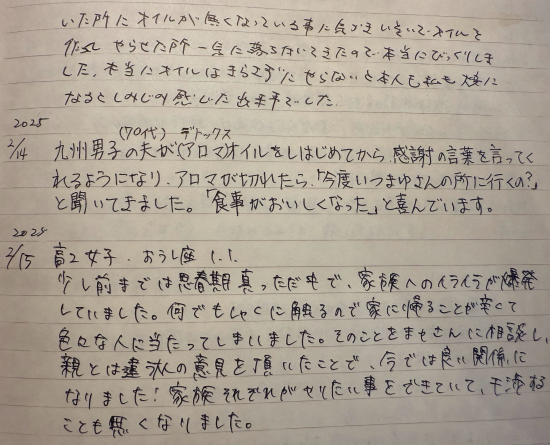 いた所にオイルが無くなっている事に気づきいそいでオイルを
作成しやらせた所一気に落ちついてきたので本当にびっくりしま
した。本当にオイルはきらさずにやらないと本人も私も大変に
なるとしみじみ感じた出来事でした。
2025
2/14 九州男子(70代)の夫が(アロマ)デトックスオイルをしはじめてから、感謝の言葉を言ってく
れるようになり、アロマが切れたら、「今度いつまゆさんの所に行くの?」
と聞いてきました。「食事がおいしくなった」と喜んでいます。
2025
2/15 高2女子.おうし座
少し前までは思春期真っただ中で、家族へのイライラが爆発
していました。何でもしゃくに触るので家に帰ることが辛くて
色々な人に当たってしまいました。そのことをまさんに相談し、
親とは違う人の意見を頂いたことで、今では良い関係に
なりました!家族それぞれがやりたい事をできていて、干渉する
ことも無くなりました。